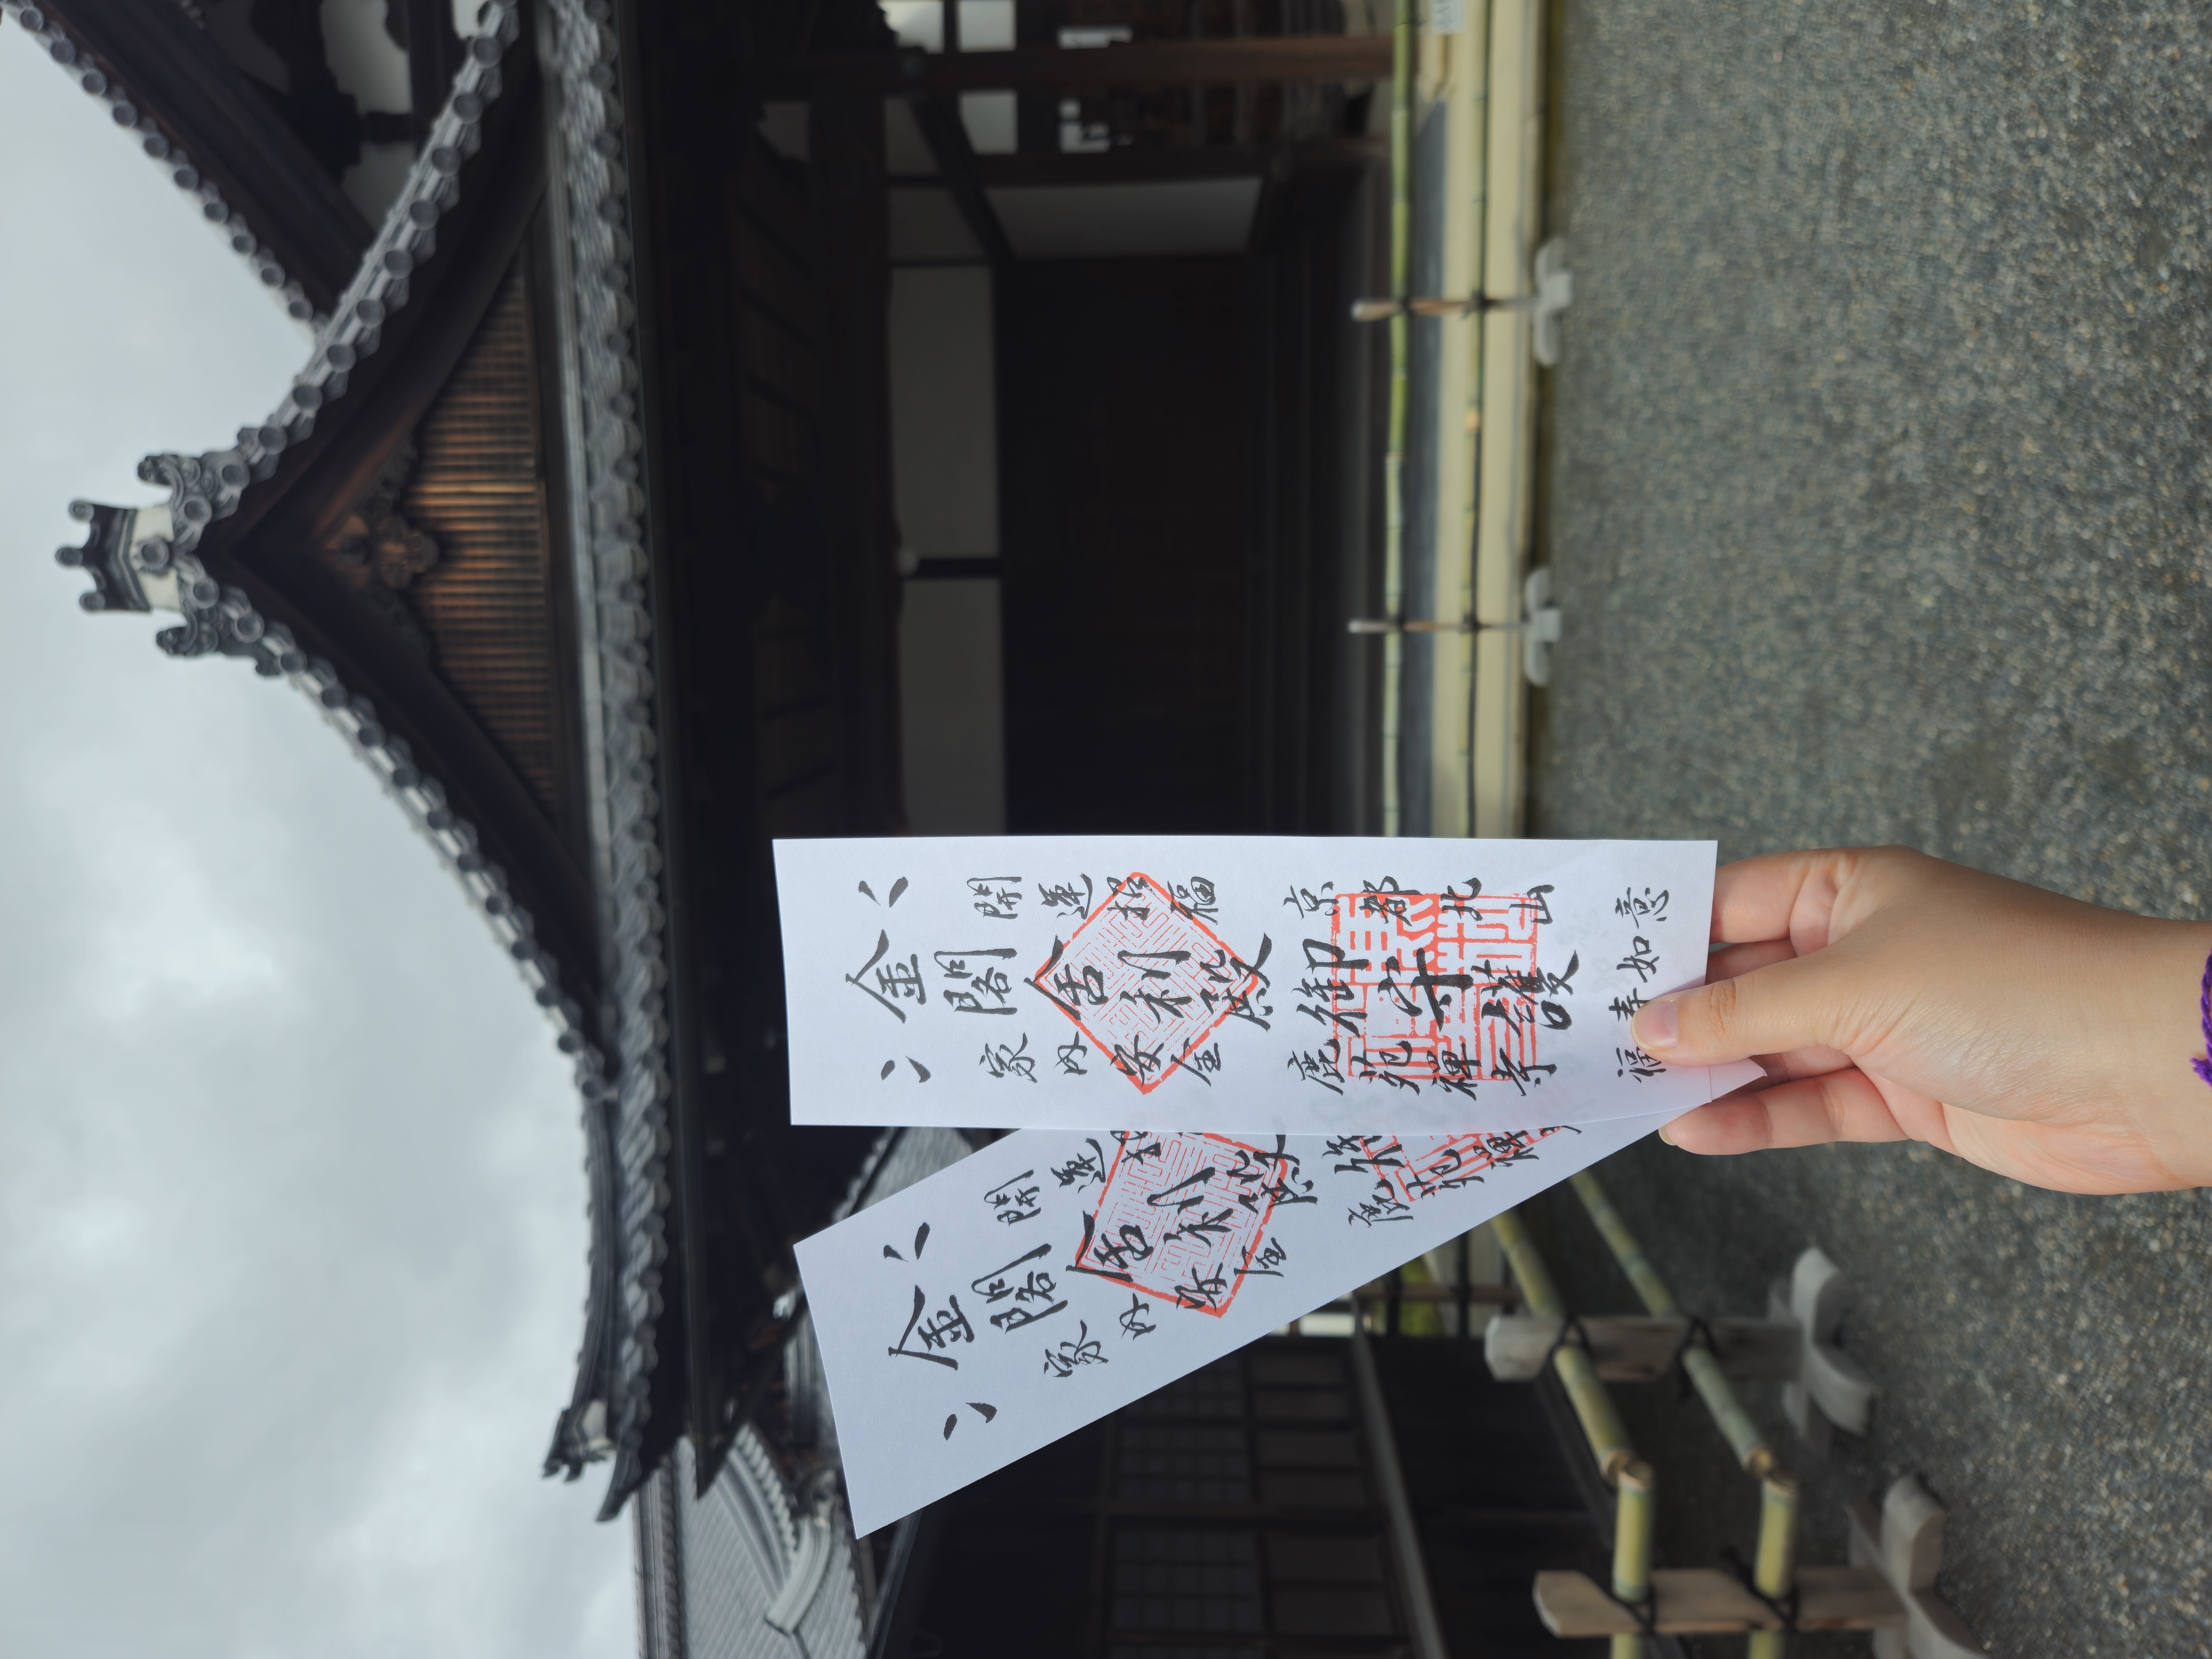 開運招福
京都北山
金閣舍利殿
御守護
家内安全
鹿苑禪寺
福寿如意
開運
金閣舍利殿
家内安全
鹿苑禪